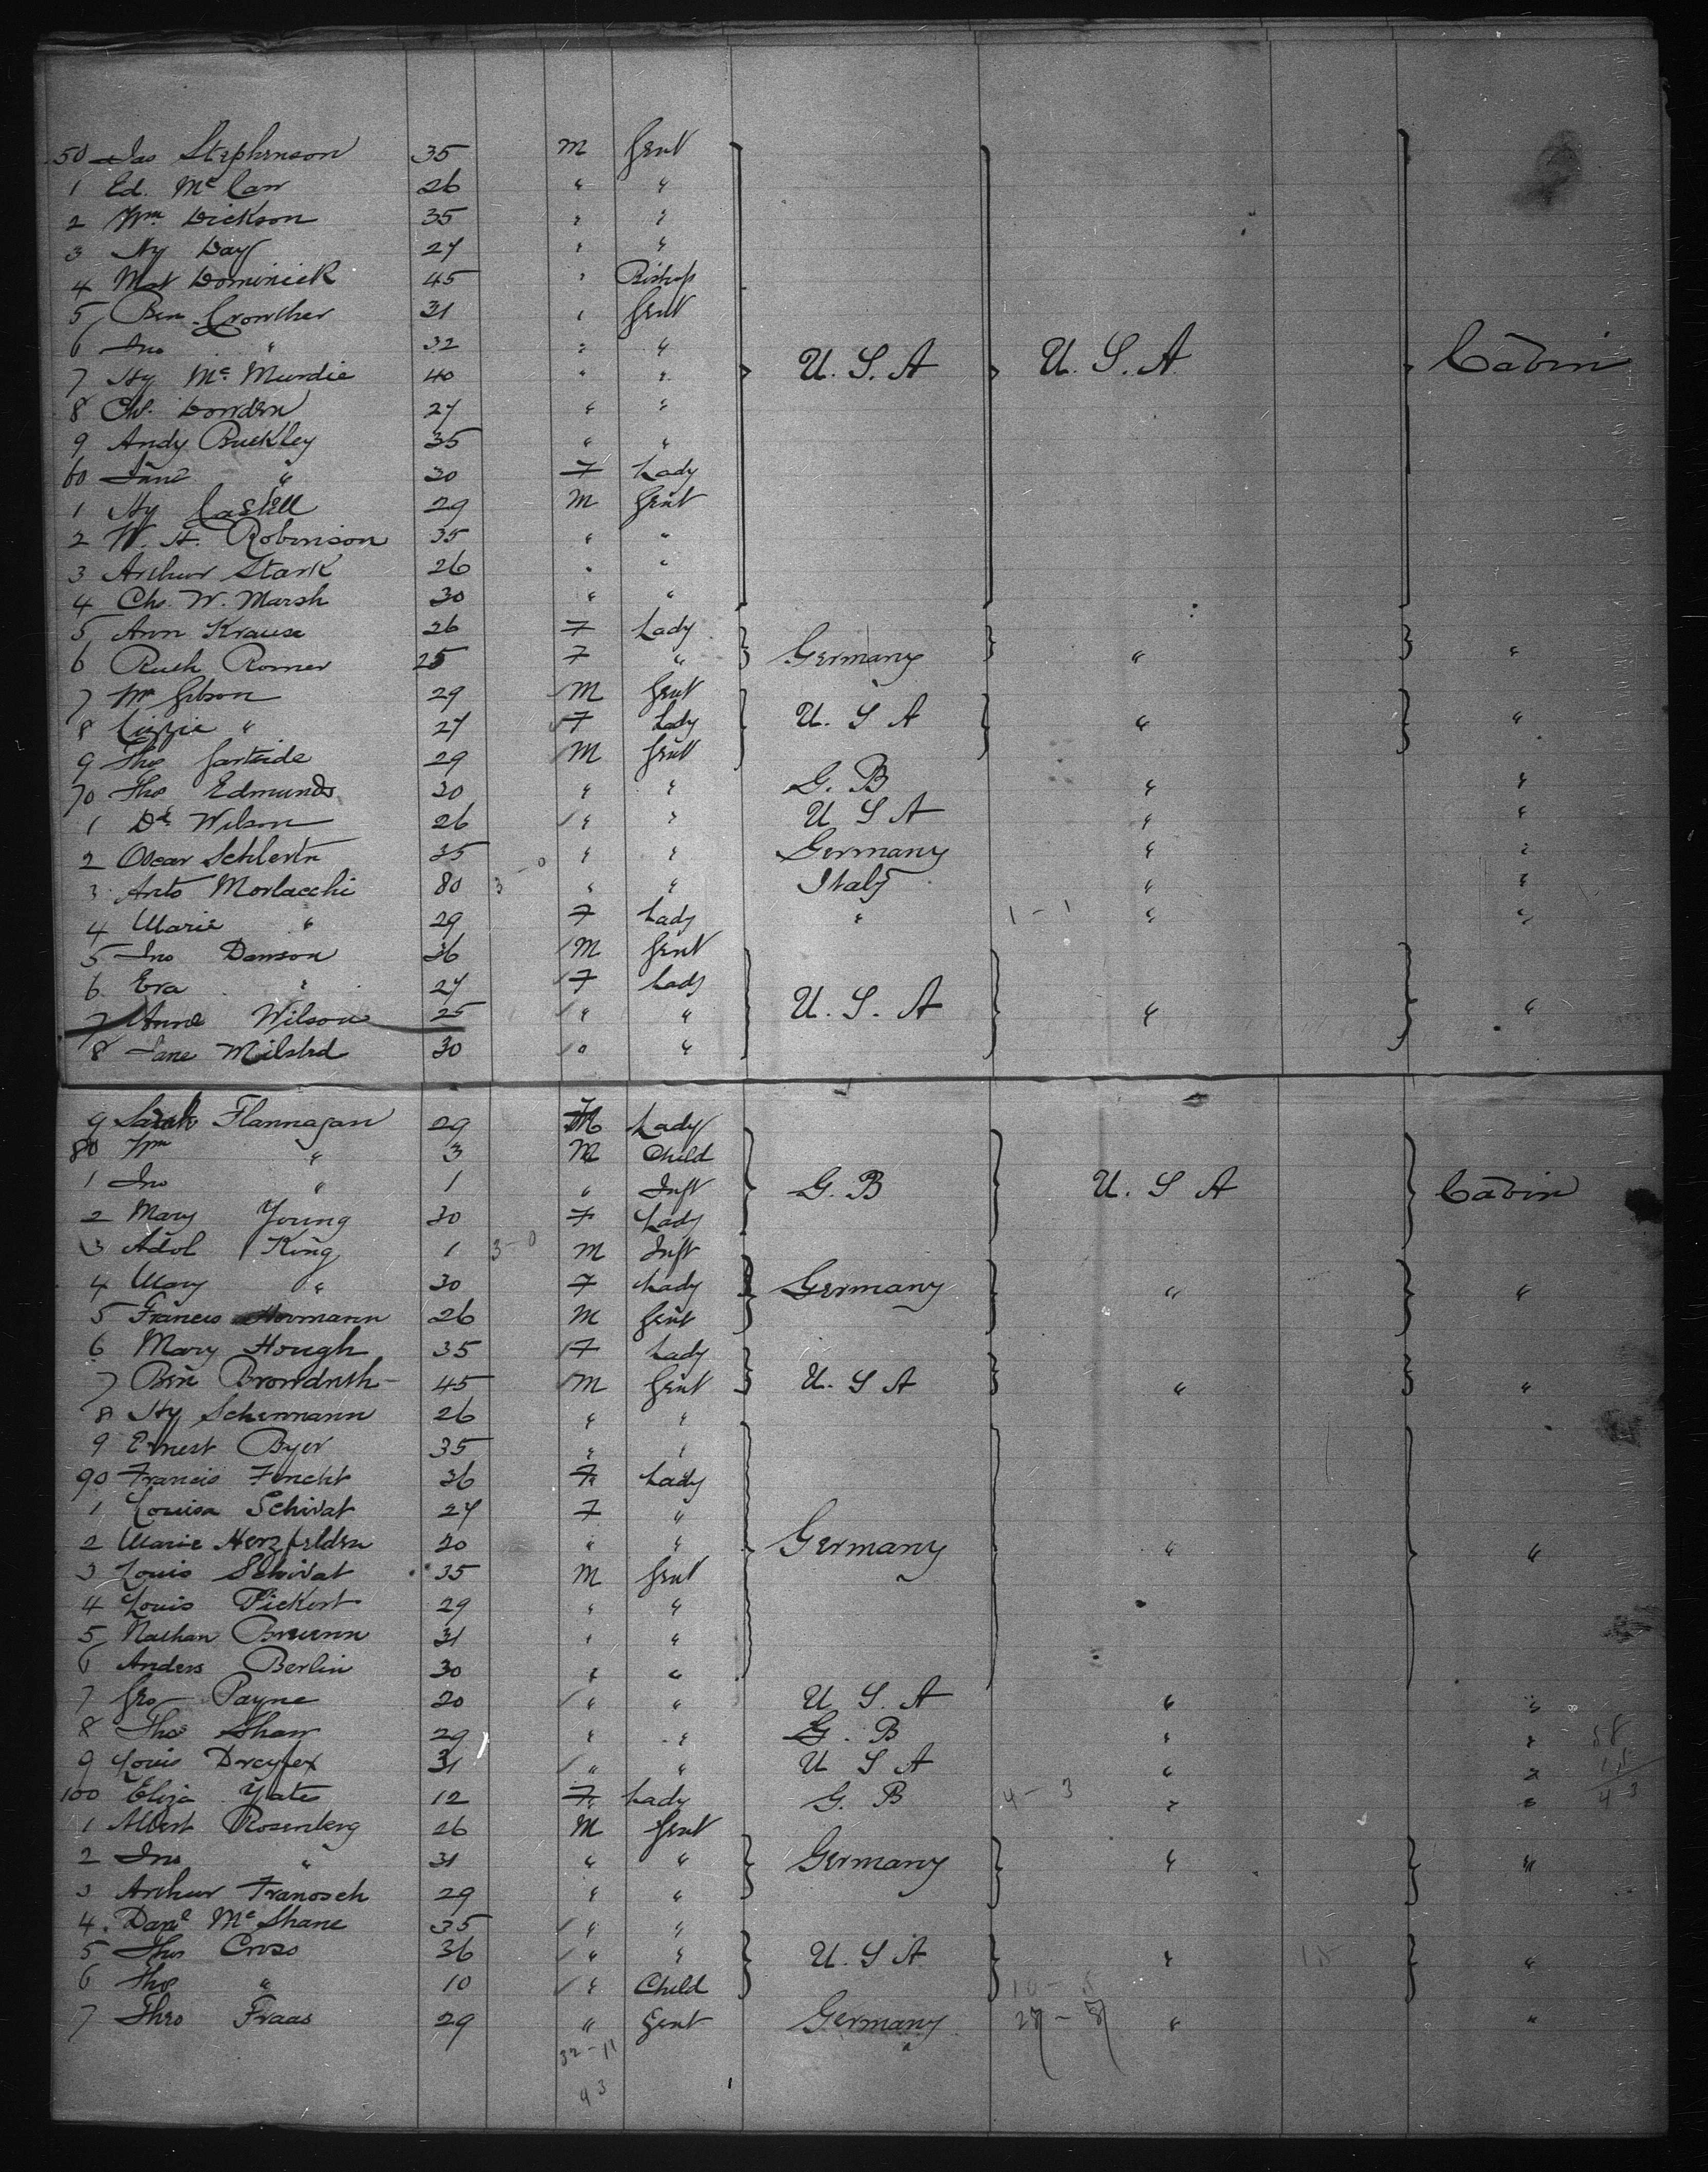 50 Jas Stephenson 35 M Gent
1 Ed. Mc Caw 26 " "
2 Wm Dickson 35 " "
3 Hy Day 27 " "
4 Mst Dominick 45 " Bishop
5 Ben Crowther 31 " Gent
6 Jno " 32 " "
7 Hy Mc Murdie 40 " " U. S. A U. S. A Cabin
8 Chs. Dowden 27 " "
9 Andy Buckley 35 " "
60 Jane " 30 F Lady
1 Hy Castell 29 M Gent
2 W. H. Robinson 35 " "
3 Arthur Stark 26 " "
4 Chs. W. Marsh 30 " "
5 Ann Krause 26 F Lady
6 Ruth Romer 25 F " Germany " "
7 Wm Gibson 29 M Gent
8 Lizzie " 27 F Lady U. S A " "
9 Thos Gartside 29 M Gent
70 Thos Edmunds 30 " " G. B " "
1 Dd Wilson 26 " " U S A " "
2 Oscar Schlertn 35 " " Germany " "
3 Anto Morlacchi 80 3 - 0 " " Italy " "
4 Marie " 29 F Lady " 1 - 1 " "
5 Jno Damson 36 M Gent
6 Eva " 27 F Lady
7 Anne Wilson 25 " " U. S. A " "
8 Jane Milstrd 30 " "
9 Sarah Flannagan 29 F Lady
80 Wm " 3 M Child
1 Jno " 1 " Inft G. B U. S A Cabin
2 Mary Young 30 F Lady
3 Adol King 1 3 - 0 M Inft
4 Mary " 30 F Lady Germany " "
5 Francis Hormann 26 M Gent
6 Mary Hough 35 F Lady
7 Ben Browdnth 45 M Gent U. S A " "
8 Hy Schermann 26 " "
9 Ernest Byer 35 " "
90 Francis Fencht 36 F Lady
1 Louisa Schivat 27 F "
2 Marie Herzfelden 20 " " Germany " "
3 Louis Schivat 35 M Gent
4 Louis Pickert 29 " "
5 Nathan Bruenn 31 " "
6 Anders Berlin 30 " "
7 Geo Payne 20 " " U S. A " "
8 Thos Shaw 29 " " G. B " " 58
9 Louis Dreyfex 31 " " U S A " " 15
100 Eliza Yates 12 F Lady G. B 4 - 3 " " 43
1 Albert Rosenberg 26 M Gent
2 Jno " 31 " " Germany " "
3 Arthur Franosch 29 " "
4 Danl Mc Shane 35 " "
5 Thos Cross 36 " " U. S A " 18 "
6 Thos " 10 " Child 10 - 8
7 Theo Fraas 29 " Gent Germany 28 - 8 " "
32 - 11
43